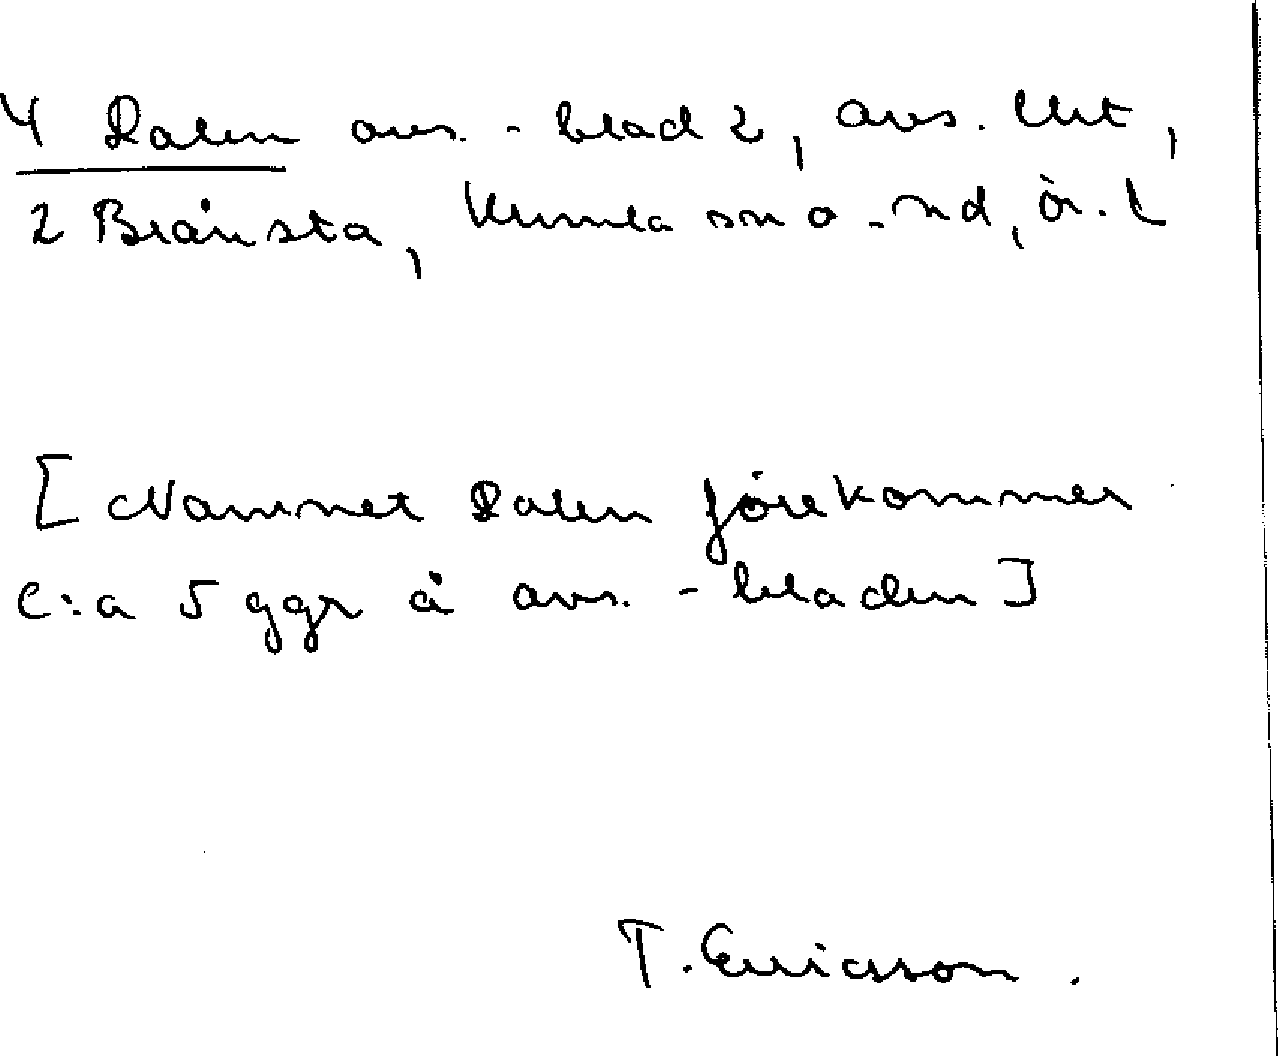 4 Dalen avs.-blad 2, avs. litt,
2 Brånsta, Kumla sn o -nd, ör. l
[Namnet Dalen förekommer
c:a 5 ggr å avs.-bladen]
T. Ericsson.